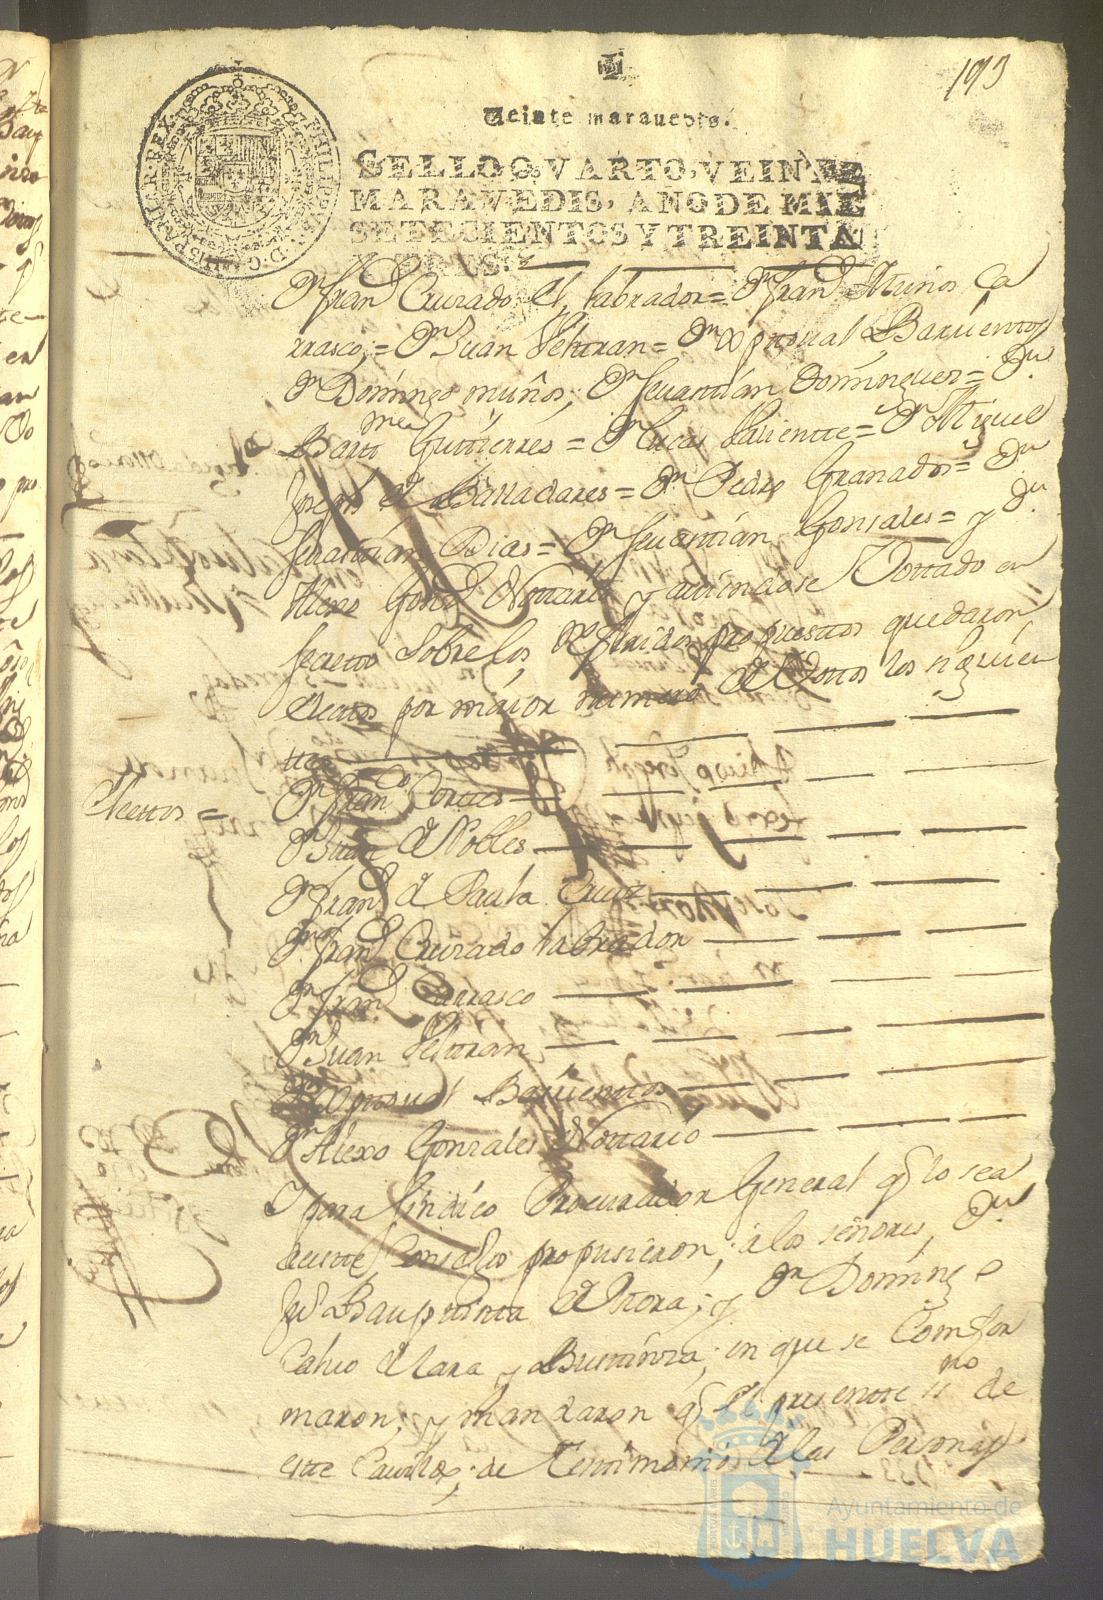 193
Veinte maravedis.
SELLO QVARTO, VEINTE
MARAVEDIS, AÑO DE MIL
SETECIENTOS Y TREINTA
Y TRES.
Dn. Franco. Cruzado el labrador = Dn. Franco. Muños Ca
rrasco; = Dn. Juan Veltran = Dn. Xptoual Barrientos
Dn. Domingo muños; Dn. Seuastian Dominguez = Dn.
Bartomea Gutierres = Dn. Lucas Valiente = Dn. Miguel
Joseph de Valladares = Dn. Pedro Granados = Dn.
Seuastian Dias = Dn. Seuastian Gonsales = y Dn.
Alexo Gonz Nottario y auiendose Vottado en
secretto sobre los referidos propuesttos quedaron
electtos por maior numero de Vottos los siguien
ttes
Electtos =
Dn. Franco. Corttes
Dn. Juan de Robles
Dn. Franco. de Paula Cruz
Dn. Franco. Cruzado labrador
Dn. Franco. Carrasco
Dn. Juan Veltran
Dn. Xptoual Barrienttos
Dn. Alexo Gonzales Nottario
Y para Sindico Procurador General q. lo sea
de este Consejo propusieron; a los señores, Dn.
Ju. Baupttista de Mora; y Dn. Domingo
Caluo de Lara y Bustinza; en que se Comfor
maron; y mandaron q. el presentte ssno de
este Cauildo; de Testimonio a las Personas
Ayuntamiento de
HUELVA